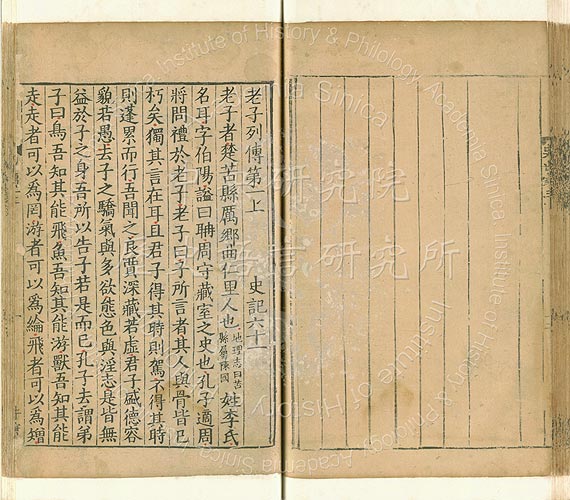 老子列傳第一上 史記六十一
老子者楚苦縣厲鄉曲仁里人也地理志曰苦縣屬陳國姓李氏
名耳字伯陽謚曰聃周守藏室之史也孔子適周
將問禮於老子老子曰子所言者其人與骨皆已
朽矣獨其言在耳且君子得其時則駕不得其時
則蓬累而行吾聞之良賈深藏若虛君子盛德容
貌若愚去子之驕氣與多欲態色與淫志是皆無
益於子之身吾所以告子若是而已孔子去謂弟
子曰鳥吾知其能飛魚吾知其能游獸吾知其能
走走者可以爲罔游者可以爲綸飛者可以爲矰
中央研究院
歷史語言研究所
Institute of History & Philology Academia Sinica